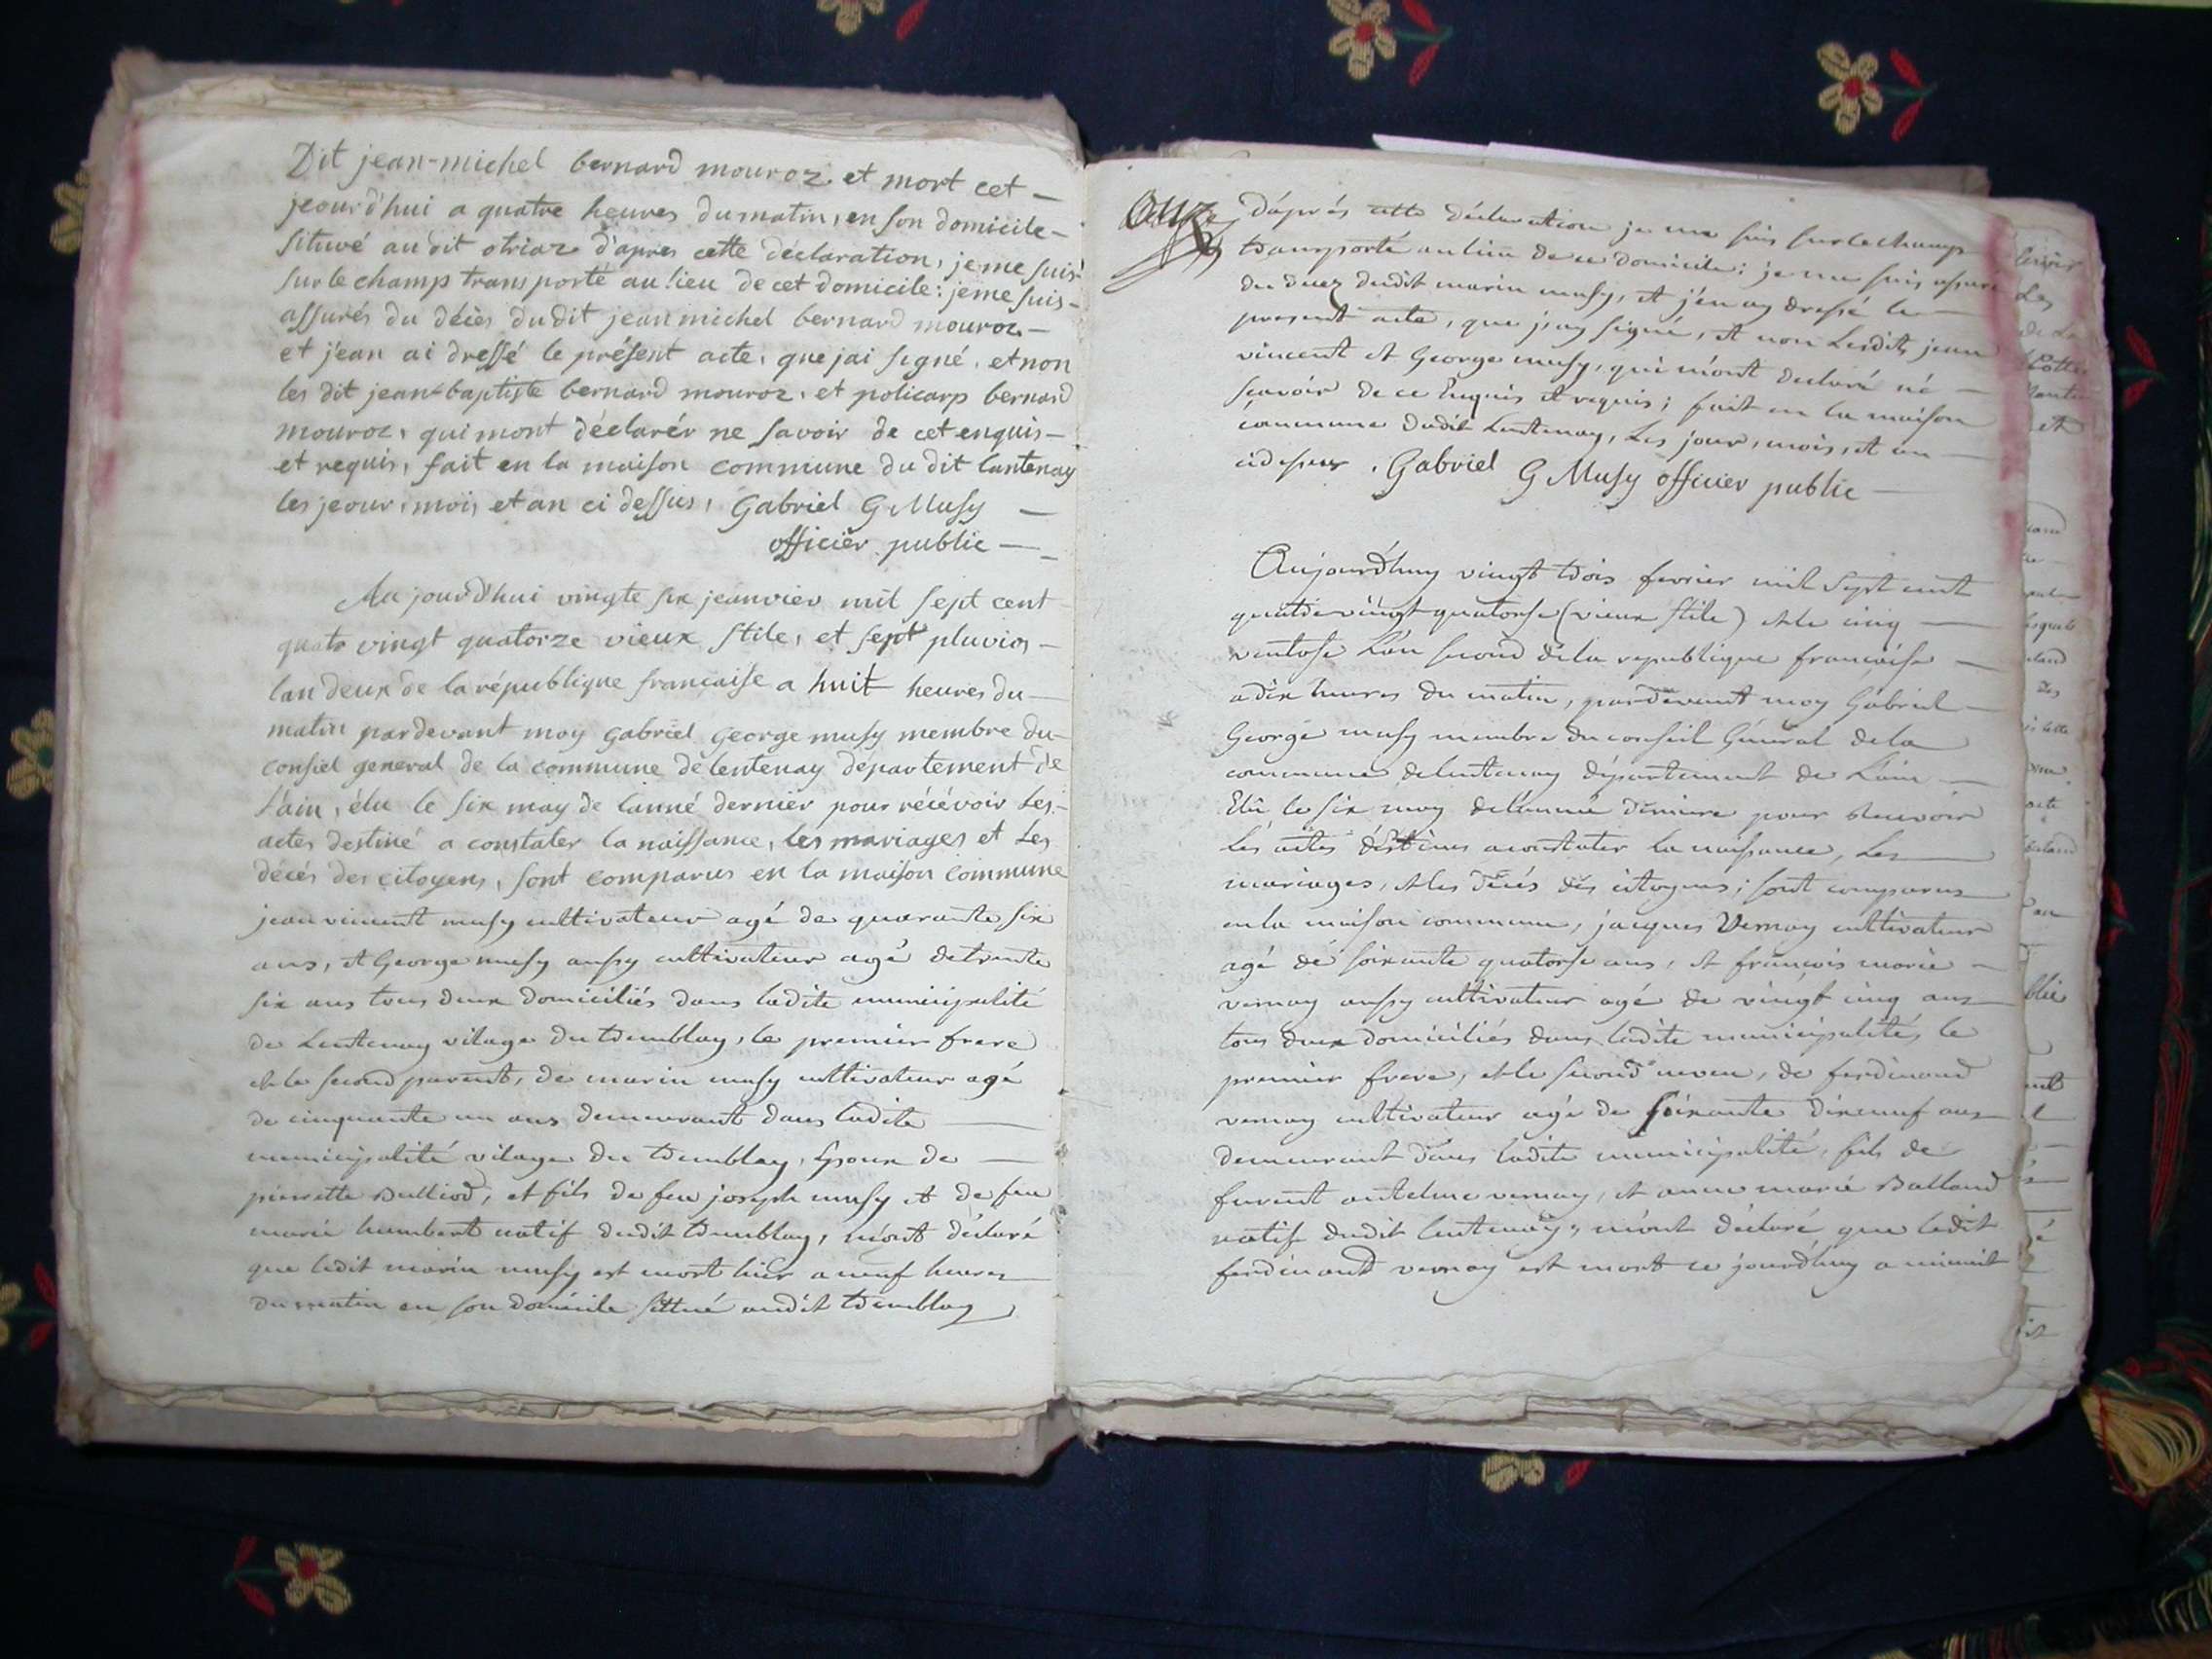 Dit jean-michel bernard mouroz et mort cet —
jeourd'hui a quatre heures du matin, en son domicile —
situvé audit otriaz d'apres cette déclaration, je me suis
sur le champ transporté au lieu de cet domicile: je me suis —
assurés du décès dudit jean michel bernard mouroz —
et j'ean ai dressé le présent acte, que jai signé, et non
les dit jean-baptiste bernard mouroz, et policarp bernard
mouroz, qui mont déclarér ne savoir de cet enquis —
et requis, fait en la maison commune du dit lantenay
les jeour, mois, et an ci dessus, Gabriel G Musy —
officier public —
Aujourd'hui vingte six jeanvier mil sept cent
quatr vingt quatorze vieux stile, et sept pluvios —
lan deux de la république française a huit heures du —
matin pardevant moy Gabriel George musy membre du
consiel general de la commune de lentenay departement de
l'ain, élu le six may de lanné dernier pour récévoir les —
actes destiné a constater la naissance, les mariages et les
décés des citoyens, sont comparus en la maison commune
jean vincent musy cultivateur agé de quarante six
ans, et George musy aussy cultivateur agé de trente
six ans tous deux domiciliés dans ladite municipalité
de Lentenay vilage du tremblay, le premier frere
et le second parent, de marin musy cultivateur agé
de cinquante un ans demeurant dans ladite —
municipalité vilage du tremblay, Epoux de —
pierrette Bulliod, et fils de feu joseph musy et de feu
marie humbert natif dudit tremblay, m'ont déclaré
que ledit marin musy est mort hier a neuf heures
du matin en son domicile sittué audit tremblay
Onze
d'aprés cette déclaration je me suis sur le champ
transporté au lieu de ce domicile; je me suis assuré
du decez dudit marin musy, et j'en ay dressé le —
present acte, que j'ay signé, et non lesdits jean
vincent et George musy, qui m'ont declaré ne —
scavoir de ce Enquis et requis; fait en la maison
commune dudit Lentenay, les jour, mois, et an —
cidessus, Gabriel G Musy officier public —
Aujourd'huy vingt trois fevrier mil sept cent
quatre vingt quatorse (vieux stile) et le cinq —
ventose l'an second de la republique françaisse —
a dix heures du matin, pardevant moy Gabriel —
George musy membre du conseil Général de la
commune de lentenay département de l'ain —
Elû le six may de l'année derniere pour recevoir
les actes déstinés a constater la naissance, les —
mariages, et les décés des citoyens; sont comparus
en la maison commune, jacques Vernay cultivateur
agé de soixante quatorse ans, et françois marie —
vernay aussy cultivateur agé de vingt cinq ans
tous deux domiciliés dans ladite municipalités, le
premier frere, et le second neveu, de ferdinand
vernay cultivateur agé de soixante dixneuf ans
demeurant dans ladite municipalité, fils de
furent antelme vernay, et anne marie Balland
natif dudit lentenay, m'ont déclaré que ledit
ferdinand vernay est mort ce jourd'huy a minuit